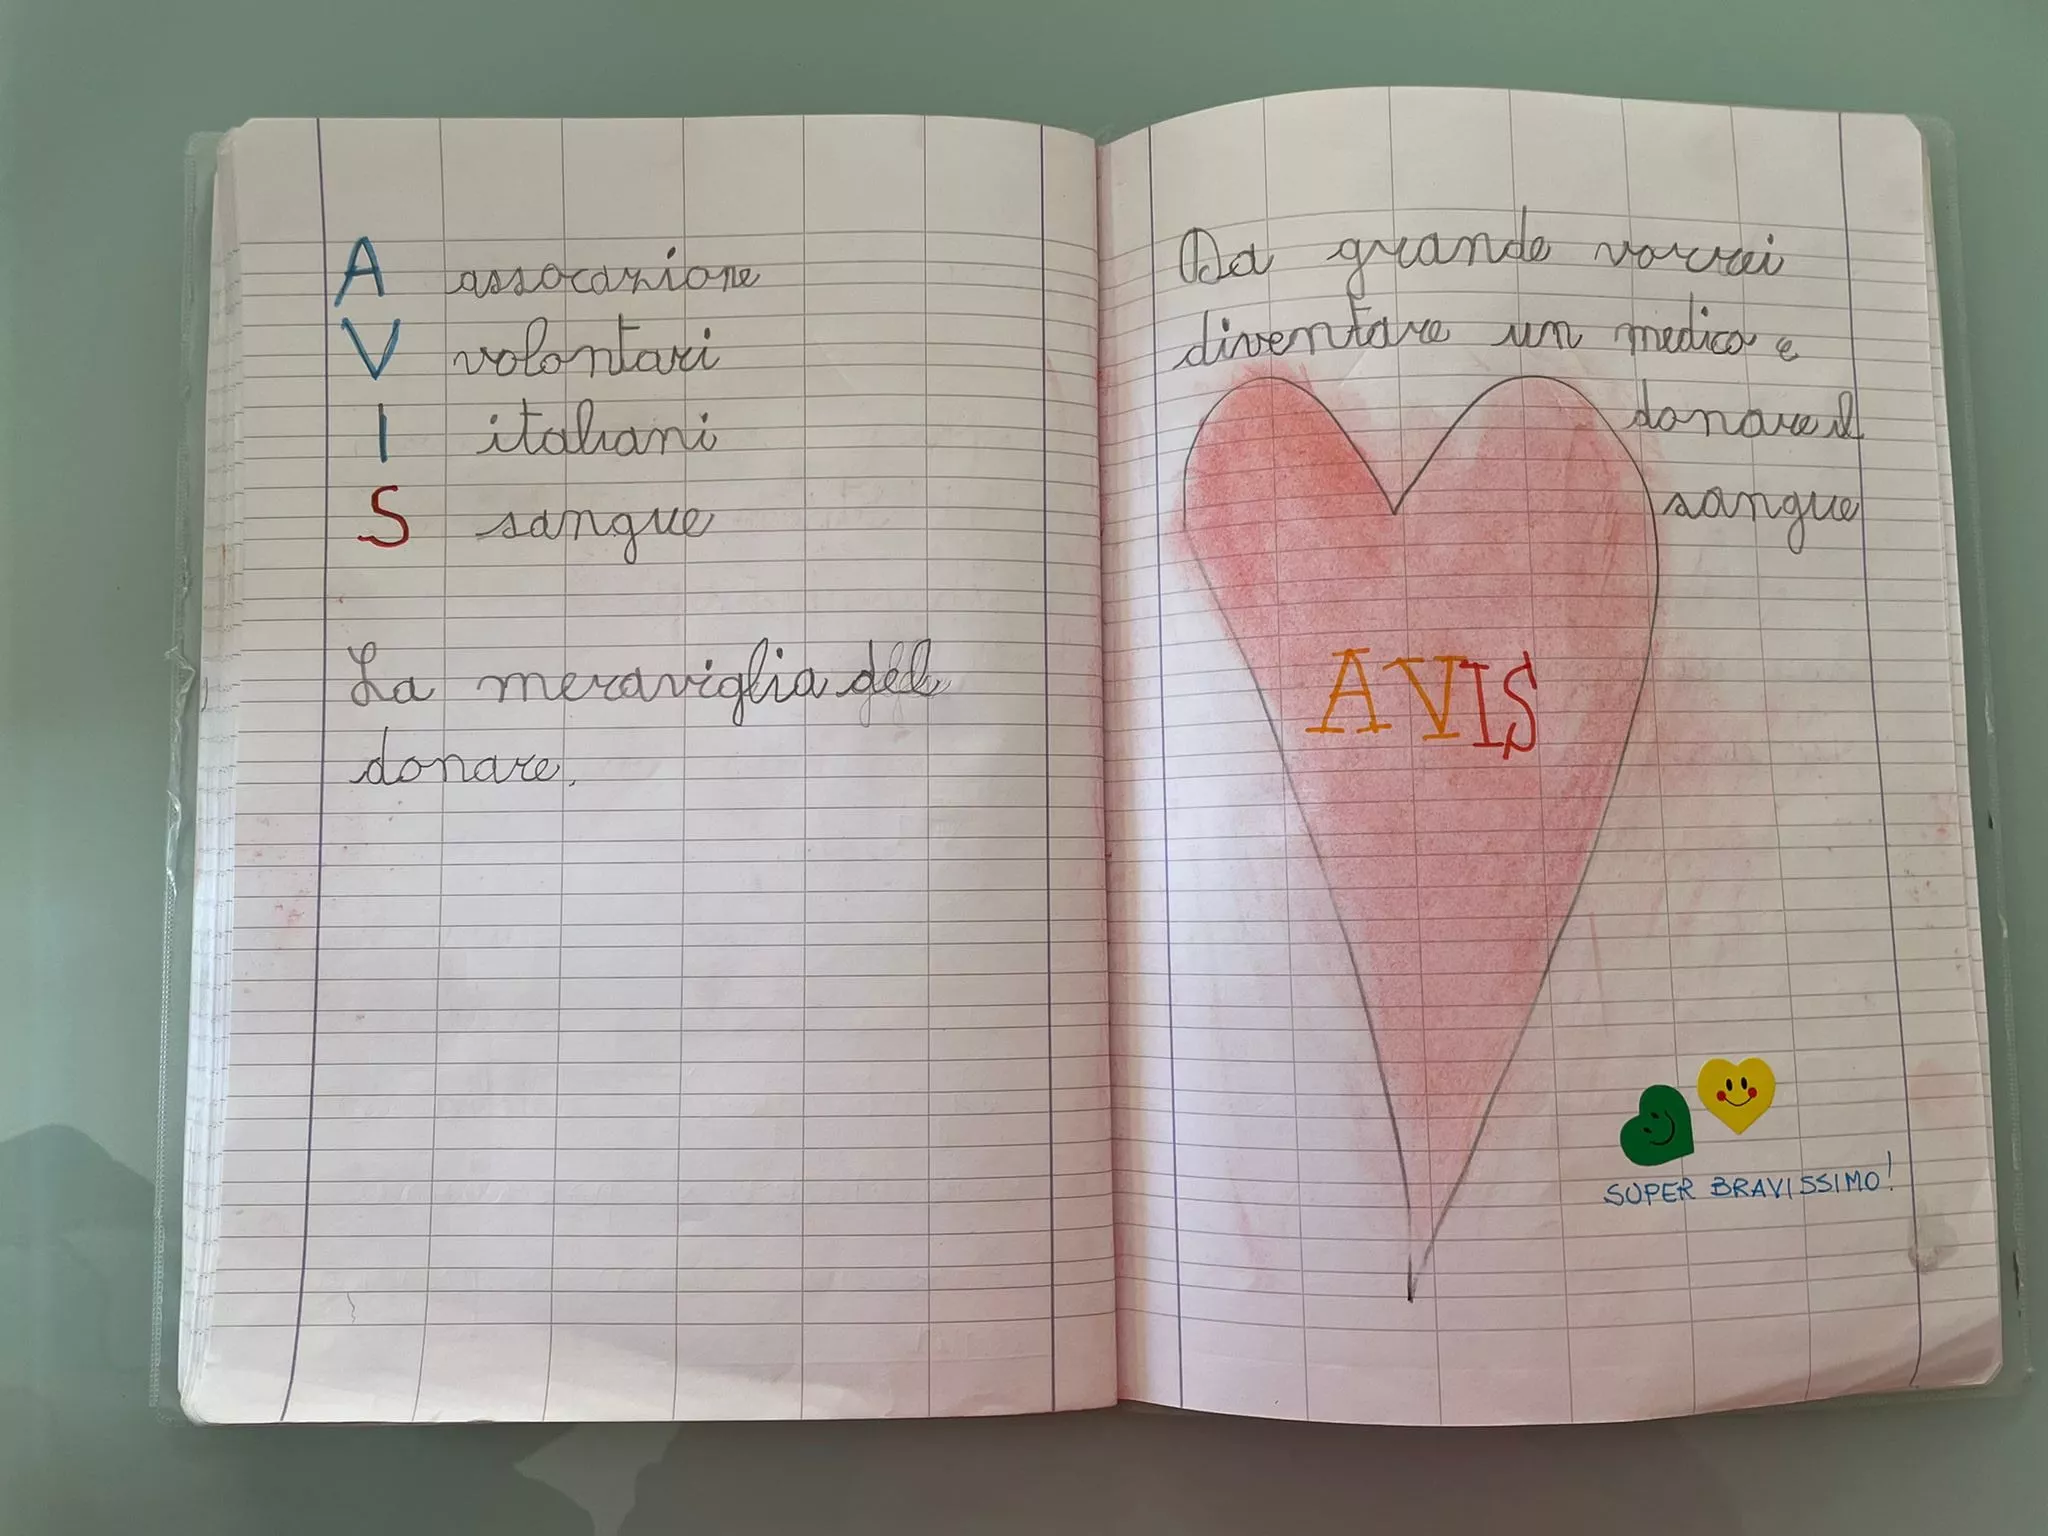 A assocazione
V volontari
I italiani
S sangue
La meraviglia del
donare.
Da grande vorrei
diventare un medico e
donare il
sangue
AVIS
SUPER BRAVISSIMO!